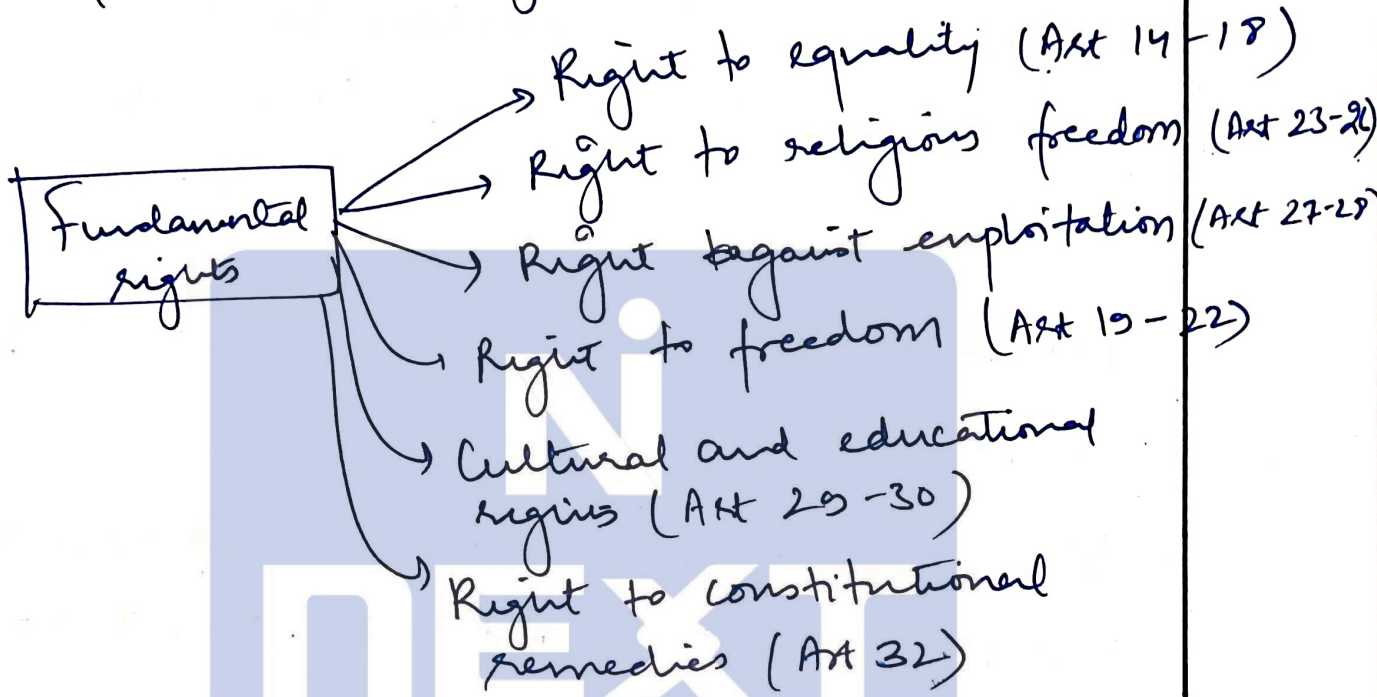 Right to equality (Art 14-18)
Right to religious freedom (Art 23-26)
Fundamental
rights
Right against exploitation (Art 27-28)
Right to freedom (Art 19-22)
Cultural and educational
rights (Art 29-30)
Right to constitutional
remedies (Art 32)
NEXT